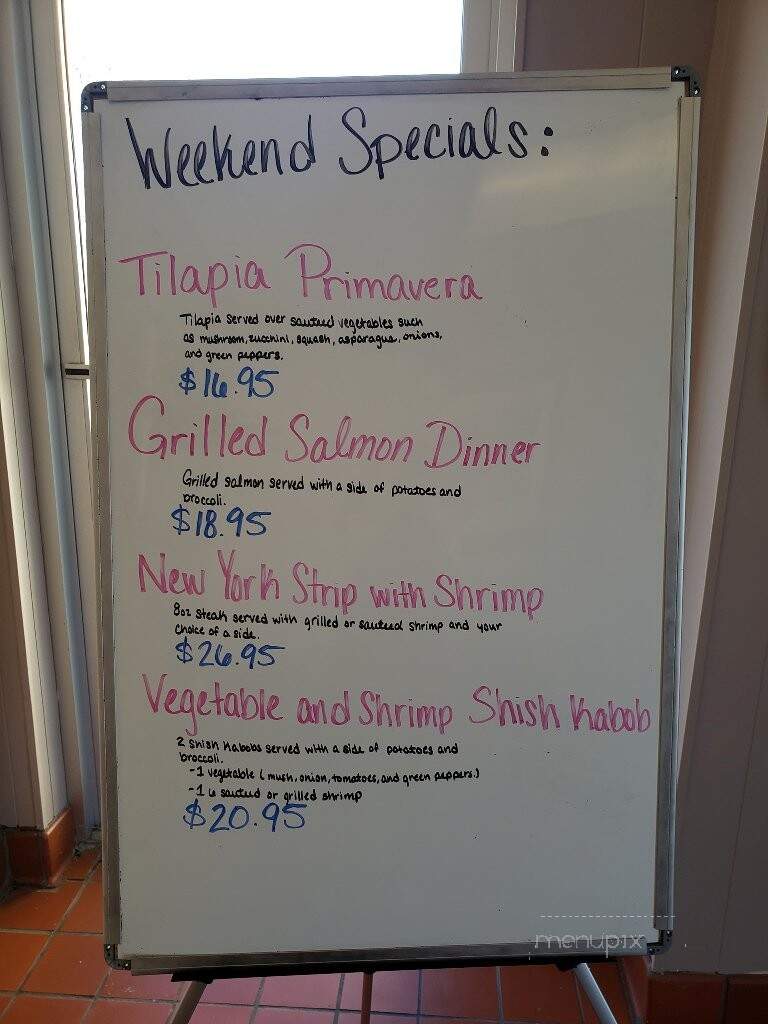 Weekend Specials:
Tilapia Primavera
Tilapia served over sauteed vegetables such
as mushroom, zucchini, squash, asparagus, onions,
and green peppers.
$16.95
Grilled Salmon Dinner
Grilled salmon served with a side of potatoes and
broccoli.
$18.95
New York Strip with Shrimp
8oz steak served with grilled or sauteed shrimp and your
choice of a side.
$26.95
Vegetable and Shrimp Shish Kabob
2 Shish Kabobs served with a side of potatoes and
broccoli.
-1 vegetable (mush, onion, tomatoes, and green peppers.)
-1 6 sauteed or grilled shrimp
$20.95
menupix